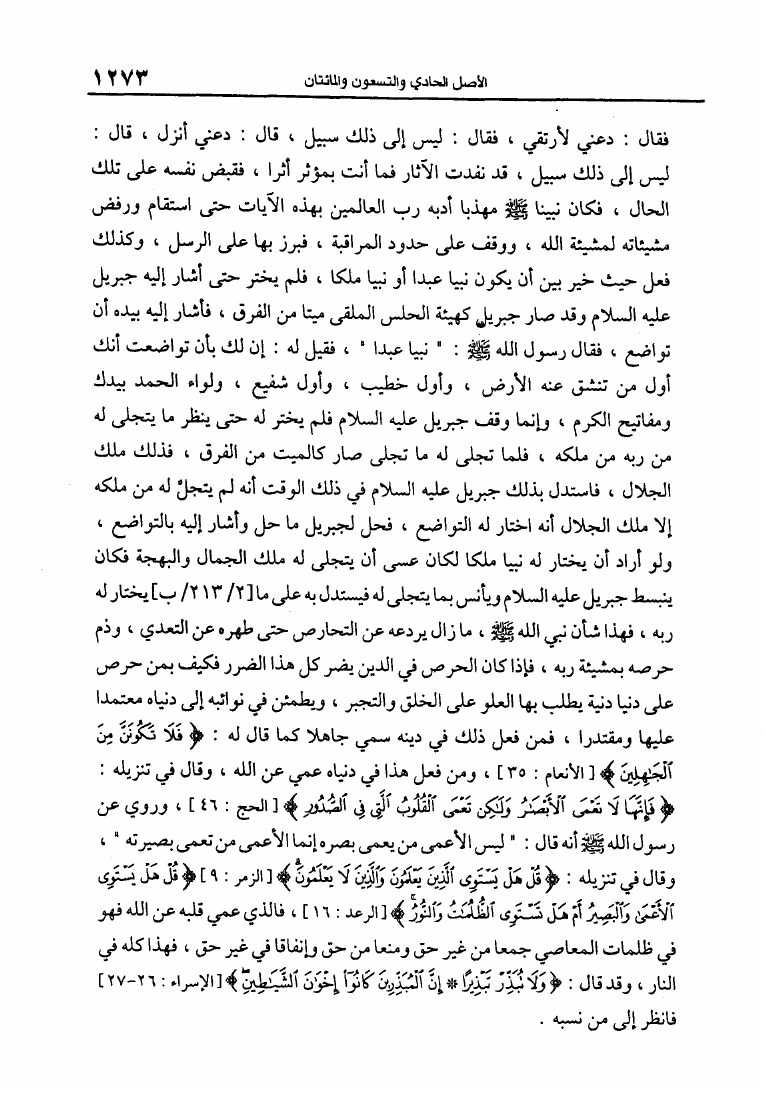 الأصل الحادي والتسعون والمائتان ١٢٧٣
فقال : دعني لأرتقي ، فقال : ليس إلى ذلك سبيل ، قال : دعني أنزل ، قال :
ليس إلى ذلك سبيل ، قد نفدت الآثار فما أنت بمؤثر أثرا ، فقبض نفسه على تلك
الحال ، فكان نبينا ﷺ مهذبا أدبه رب العالمين بهذه الآيات حتى استقام ورفض
مشيئاته لمشيئة الله ، ووقف على حدود المراقبة ، فبرز بها على الرسل ، وكذلك
فعل حيث خير بين أن يكون نبيا عبدا أو نبيا ملكا ، فلم يختر حتى أشار إليه جبريل
عليه السلام وقد صار جبريل كهيئة الحلس الملقى ميتا من الفرق ، فأشار إليه بيده أن
تواضع ، فقال رسول الله ﷺ : " نبيا عبدا " ، فقيل له : إن لك بأن تواضعت أنك
أول من تنشق عنه الأرض ، وأول خطيب ، وأول شفيع ، ولواء الحمد بيدك
ومفاتيح الكرم ، وإنما وقف جبريل عليه السلام فلم يختر له حتى ينظر ما يتجلى له
من ربه من ملكه ، فلما تجلى له ما تجلى صار كالميت من الفرق ، فذلك ملك
الجلال ، فاستدل بذلك جبريل عليه السلام في ذلك الوقت أنه لم يتجلّ له من ملكه
إلا ملك الجلال أنه اختار له التواضع ، فحل لجبريل ما حل وأشار إليه بالتواضع ،
ولو أراد أن يختار له نبيا ملكا لكان عسى أن يتجلى له ملك الجمال والبهجة فكان
ينبسط جبريل عليه السلام ويأنس بما يتجلى له فيستدل به على ما [٢/ ٢١٣/ ب] يختار له
ربه ، فهذا شأن نبي الله ﷺ ، ما زال يردعه عن التحارص حتى طهره عن التعدي ، وذم
حرصه بمشيئة ربه ، فإذا كان الحرص في الدين يضر كل هذا الضرر فكيف بمن حرص
على دنيا دنية يطلب بها العلو على الخلق والتجبر ، ويطمئن في نوائبه إلى دنياه معتمدا
عليها ومقتدرا ، فمن فعل ذلك في دينه سمي جاهلا كما قال له : ﴿ فَلَا تَكُونَنَّ مِنَ
ٱلْجَٰهِلِينَ ﴾ [ الأنعام : ٣٥ ] ، ومن فعل هذا في دنياه عمي عن الله ، وقال في تنزيله :
﴿ فَإِنَّهَا لَا تَعْمَى ٱلْأَبْصَٰرُ وَلَٰكِن تَعْمَى ٱلْقُلُوبُ ٱلَّتِي فِي ٱلصُّدُورِ ﴾ [ الحج : ٤٦ ] ، وروي عن
رسول الله ﷺ أنه قال : " ليس الأعمى من يعمى بصره إنما الأعمى من تعمى بصيرته " ،
وقال في تنزيله : ﴿ قُلْ هَلْ يَسْتَوِى ٱلَّذِينَ يَعْلَمُونَ وَٱلَّذِينَ لَا يَعْلَمُونَ ﴾ [ الزمر : ٩ ] ﴿ قُلْ هَلْ يَسْتَوِى
ٱلْأَعْمَىٰ وَٱلْبَصِيرُ أَمْ هَلْ تَسْتَوِى ٱلظُّلُمَٰتُ وَٱلنُّورُ ﴾ [ الرعد : ١٦ ] ، فالذي عمي قلبه عن الله فهو
في ظلمات المعاصي جمعا من غير حق ومنعا من حق وإنفاقا في غير حق ، فهذا كله في
النار ، وقد قال : ﴿ وَلَا تُبَذِّرْ تَبْذِيرًا * إِنَّ ٱلْمُبَذِّرِينَ كَانُوٓا۟ إِخْوَٰنَ ٱلشَّيَٰطِينِ ﴾ [ الإسراء : ٢٦-٢٧ ]
فانظر إلى من نسبه .